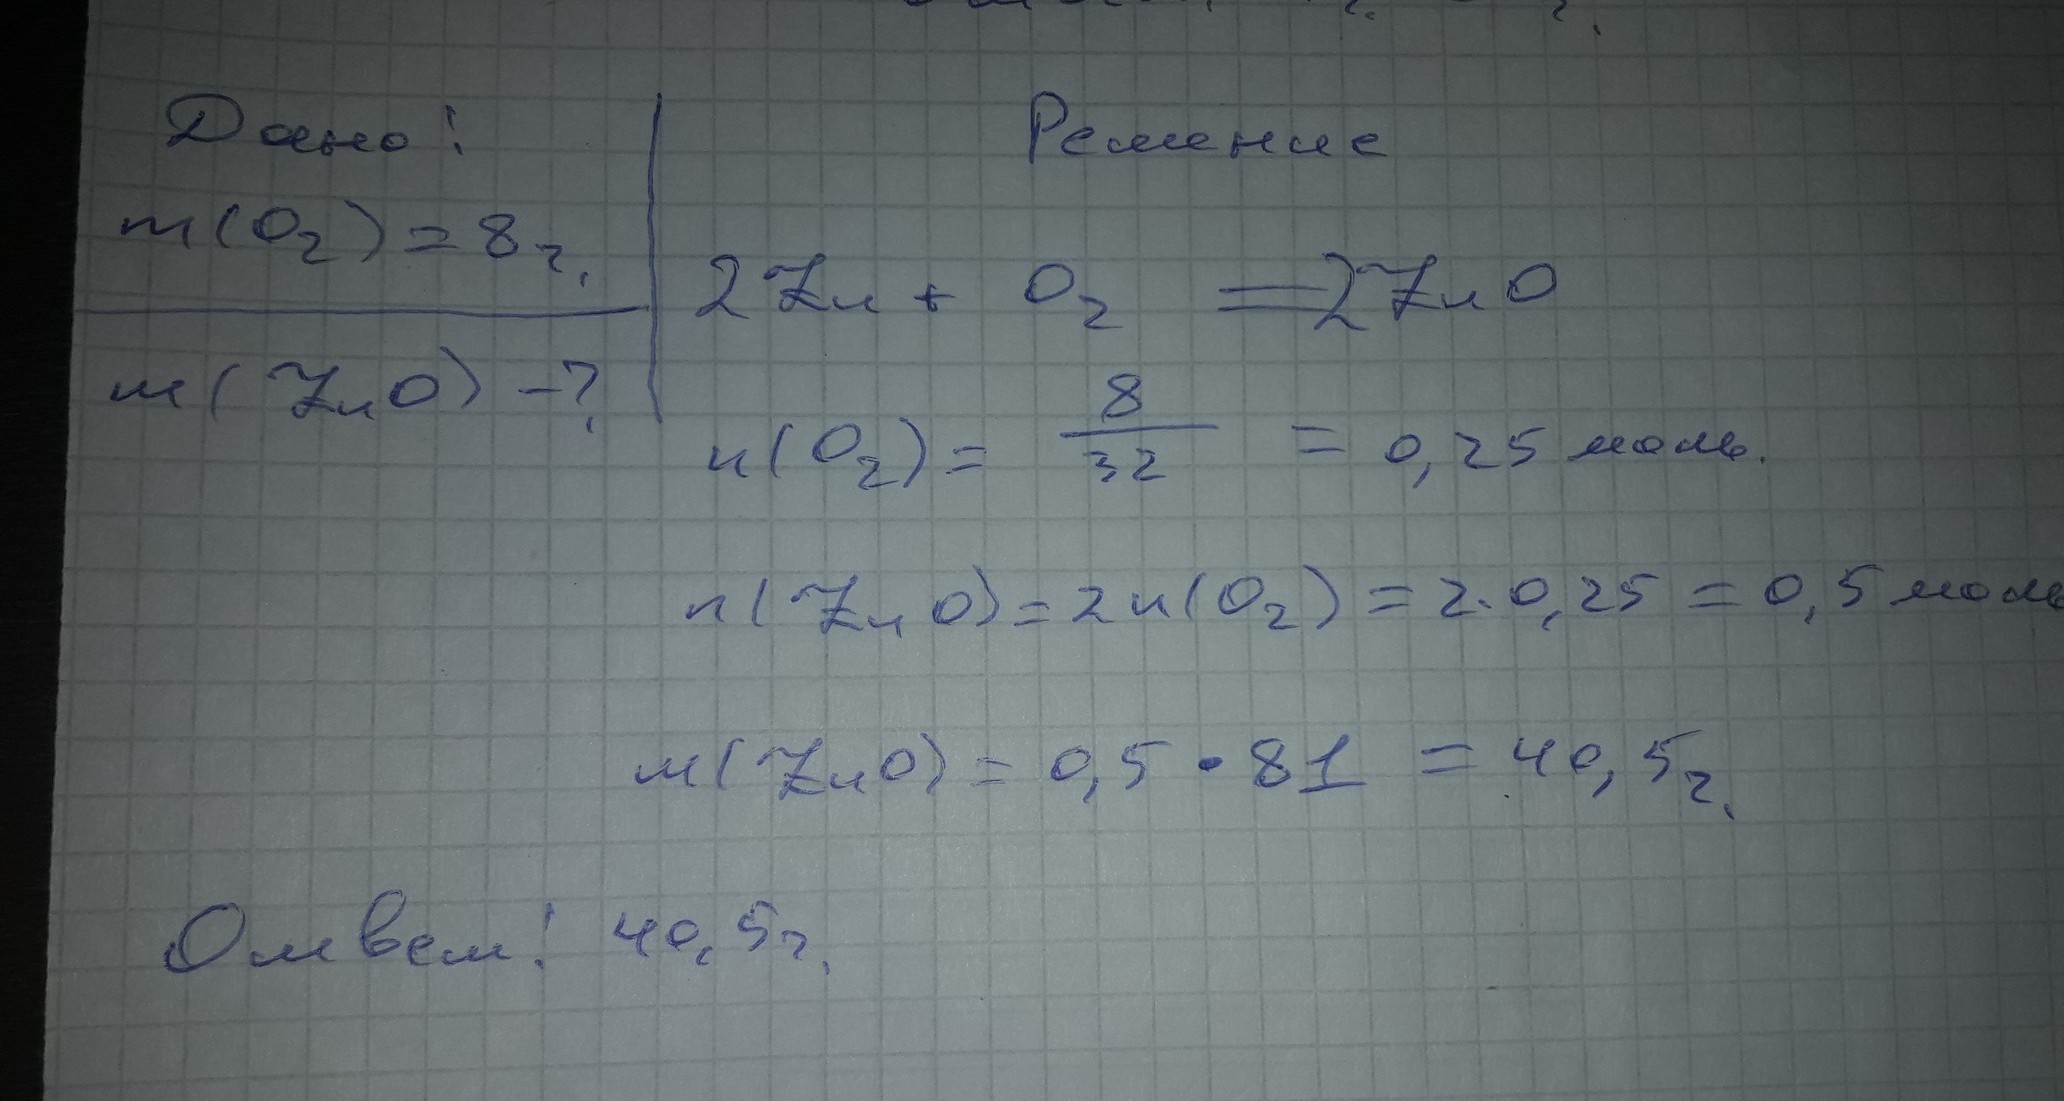 Дано:
m(O₂) = 8г.
m(ZnO) - ?
Решение
2Zn + O₂ = 2ZnO
n(O₂) = 8/32 = 0,25 моль.
n(ZnO) = 2n(O₂) = 2·0,25 = 0,5 моль
m(ZnO) = 0,5 · 81 = 40,5г.
Ответ: 40,5г.